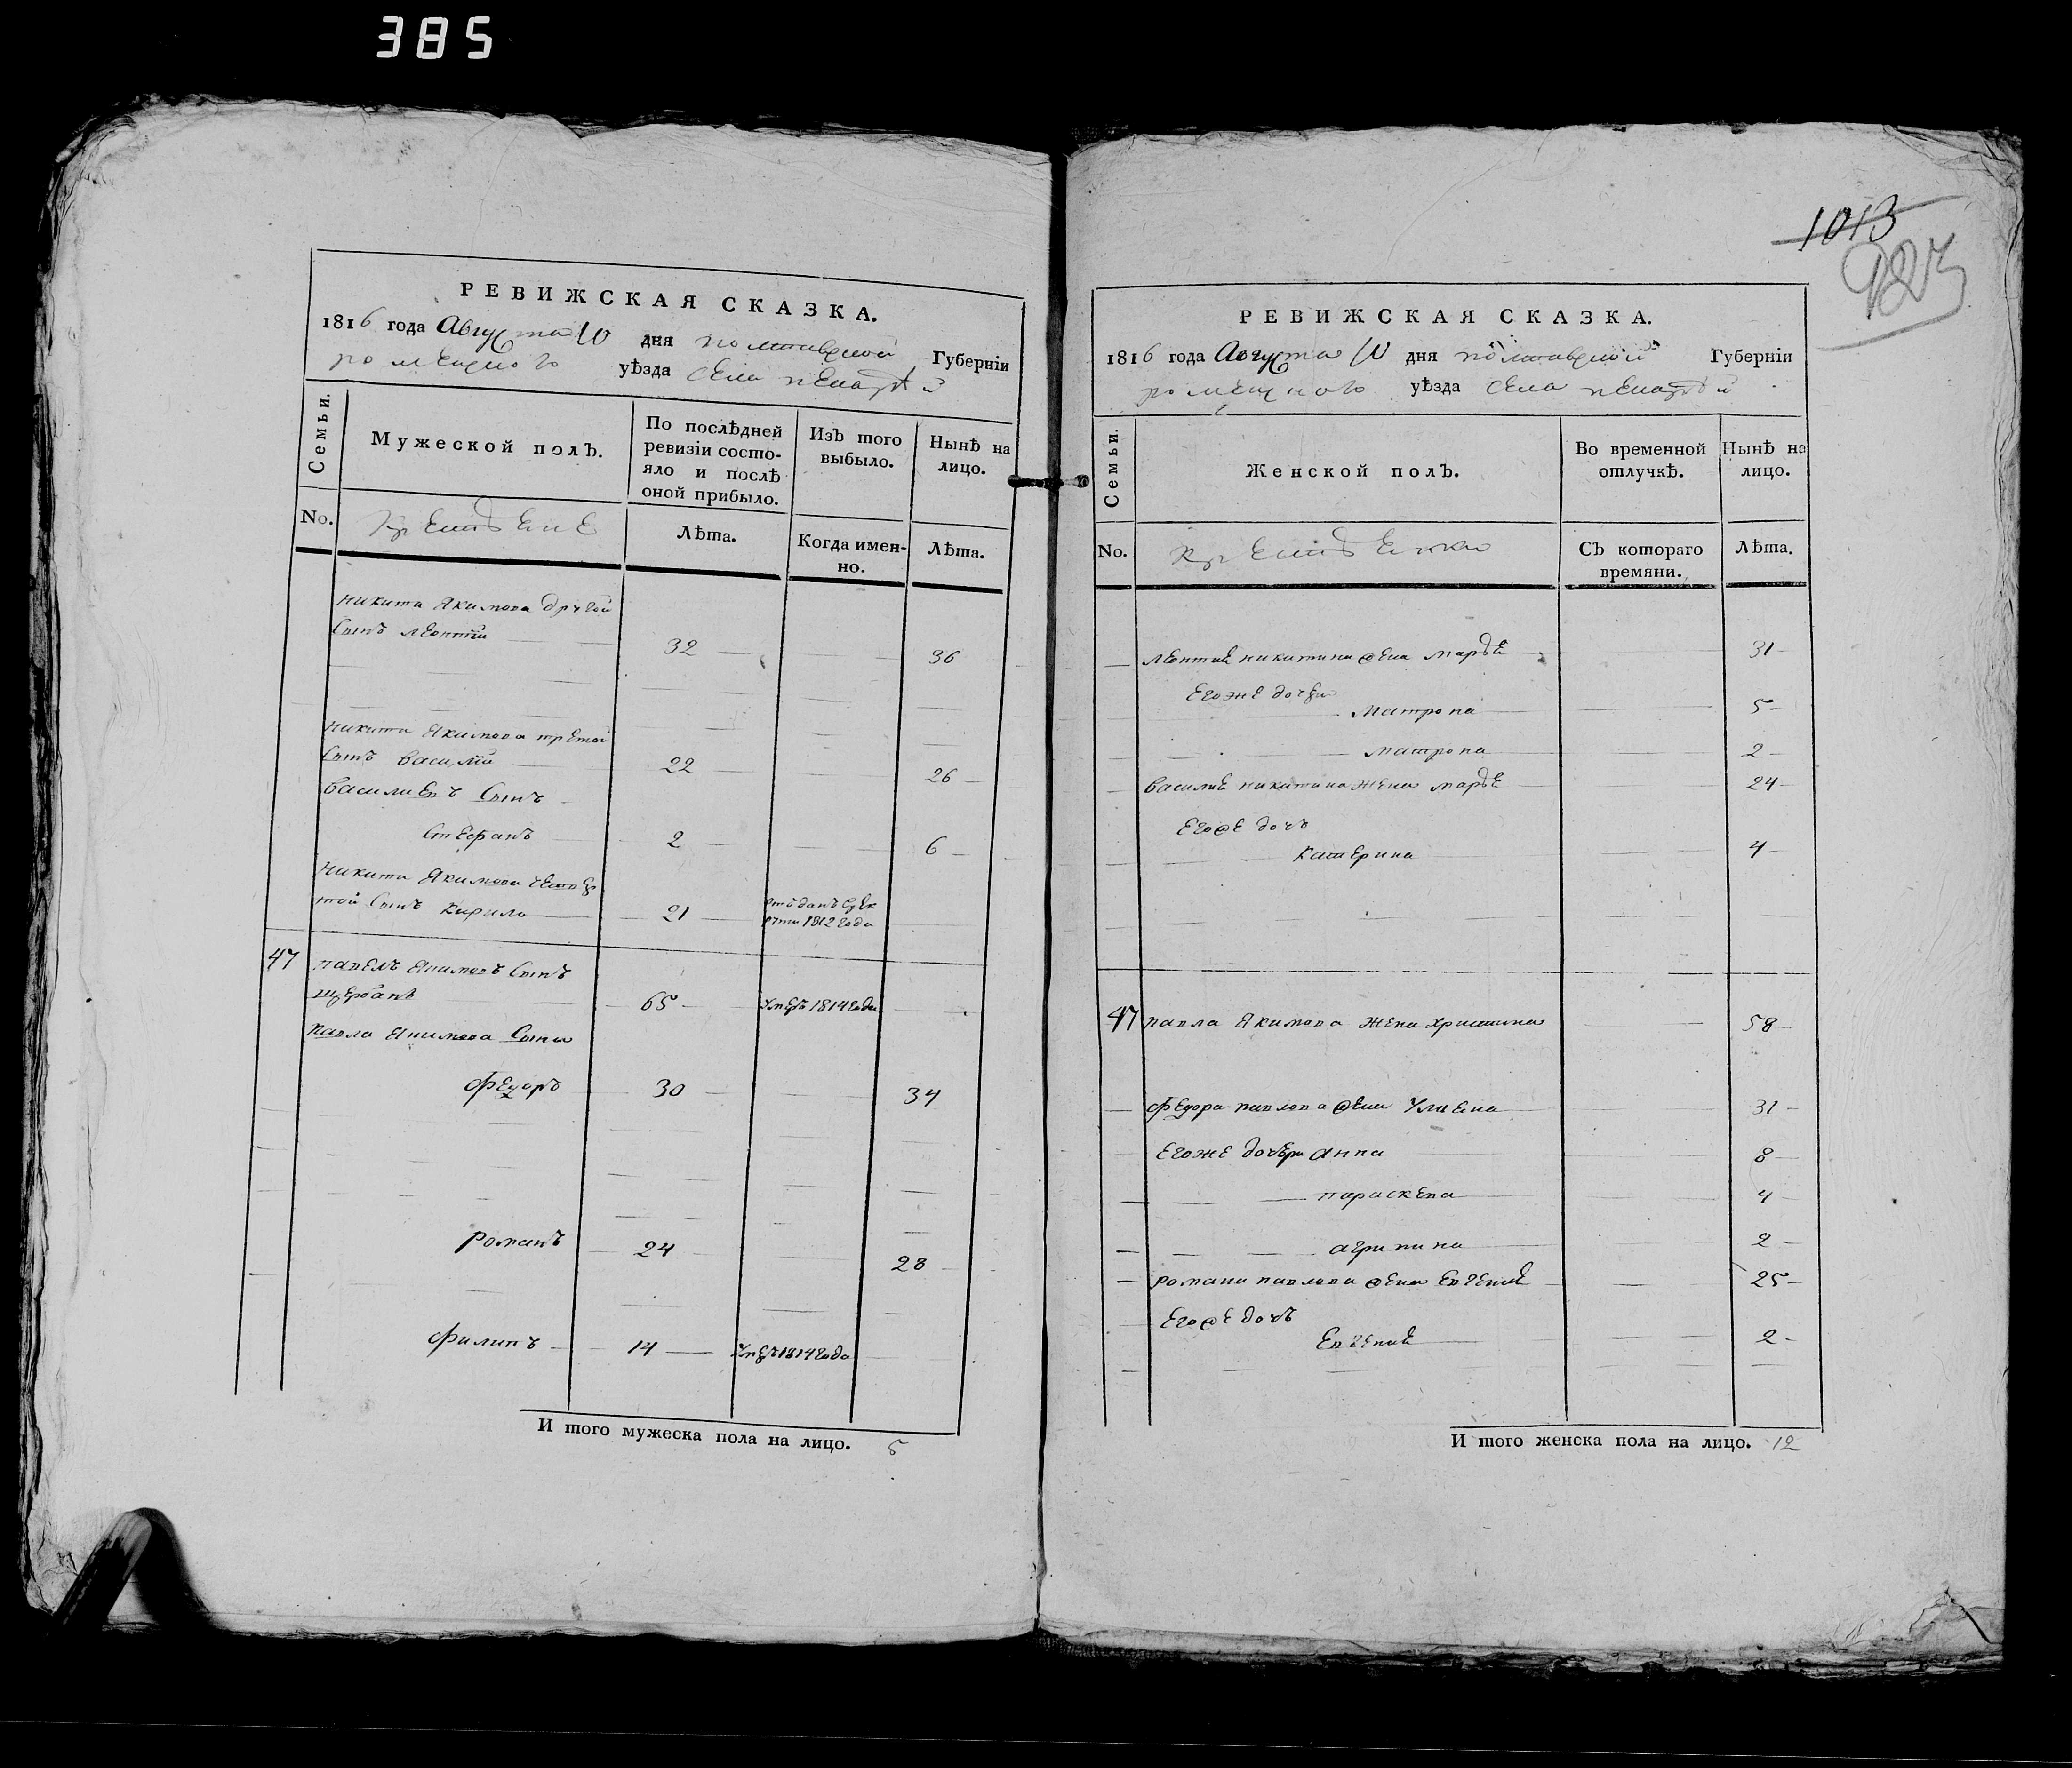 385
РЕВИЖСКАЯ СКАЗКА.
1816 года Августа 10 дня полтавской Губерніи
роменского уѣзда села
Семьи.
Мужеской полЪ.
По послѣдней ревизіи состо-
яло и послѣ
оной прибыло.
ИзЪ того
выбыло.
Нынѣ на
лицо.
No.
Крестьяне
Лѣта.
Когда имен-
но.
Лѣта.
никита Якимова другой
сынъ леонтій 32 36
никиты Якимова третой
сынъ василій 22 26
василиевъ сынъ
стефанъ 2 6
никиты Якимова четвер
той сынъ кирило 21 отданъ в рек
руты 1812 года
47 павелъ Якимовъ сынъ
щербань 65 умеръ 1814 года
павла Якимова сыны
федоръ 30 34
романъ 24 28
филипъ 14 умеръ 1814 года
И того мужеска пола на лицо. 5
1013
РЕВИЖСКАЯ СКАЗКА.
1816 года Августа 10 дня полтавской Губерніи
роменского уѣзда села
Семьи.
Женской полЪ.
Во временной
отлучкѣ.
Нынѣ на
лицо.
No.
Крестьянка
СЪ котораго
времяни.
Лѣта.
леонтия никитина жена марья 31
его же дочери
матрона 5
матрона 2
василия никитина жена марья 24
его же дочь
катерина 4
47 павла Якимова жена христина 58
федора павлова жена улияна 31
его же дочери анна 8
параскева 4
агрипина 2
романа павлова жена евгения 25
его же дочь
евгения 2
И того женска пола на лицо. 12